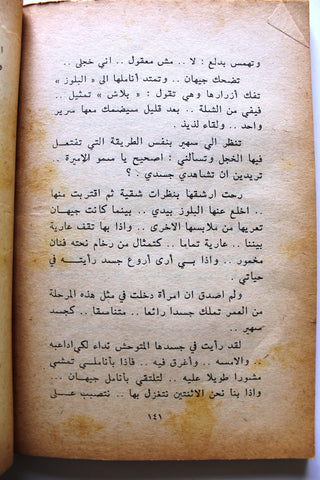 وتهمس بدلع : لا . . مش معقول . . اني خجلى . .
تضحك جيهان . . وتمتد أناملها الى « البلوز »
تفك أزرارها وهي تقول : « بلاش » تمثيل . .
فيفي من الشلة . . بعد قليل سيضمك معها سرير
واحد . . ولقاء لذيذ .
تنظر الي سهير بنفس الطريقة التي تفتعل
فيها الخجل وتسألني : أصحيح يا سمو الاميرة . .
تريدين ان تشاهدي جسدي . ؟
رحت ارشقها بنظرات شقية ثم اقتربت منها
. . اخلع عنها البلوز بيدي . . بينما كانت جيهان
تعريها من ملابسها الاخرى . . واذا بها تقف عارية
بيننا . . عارية تماما . . كتمثال من رخام نحته فنان
مخمور . . واذا بي أرى أروع جسد رأيته في
حياتي .
ولم اصدق ان امرأة دخلت في مثل هذه المرحلة
من العمر تملك جسدا رائعا . . متناسقا . . كجسد
سهير . .
لقد رأيت في جسدها المتوحش نداء لكي اداعبه
. . والامسه . . وأغرق فيه . . فاذا بأناملي تمشي
مشورا طويلا عليه . . لتلتقي بأنامل جيهان . . .
واذا بنا نحن الاثنتين نتغزل بها . . نتصبب على
١٤١